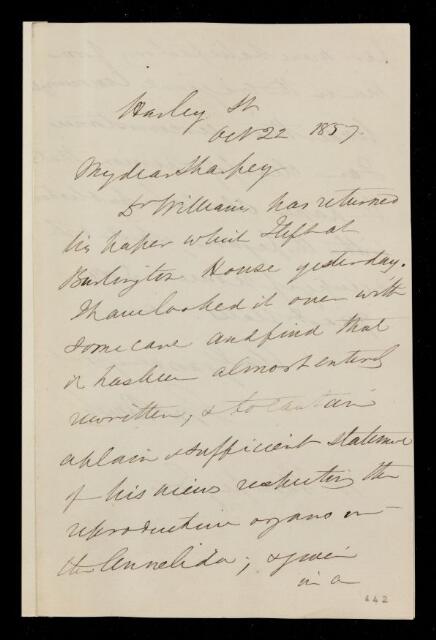 Harley St
Oct 22 1857.
My dear Sharpey
Dr Williams has returned
his paper which I left at
Burlington House yesterday.
I have looked it over with
some care and find that
it has been almost entirely
rewritten, & to contain
a plain & sufficient statement
of his views respecting the
reproductive organs in
the Annelida; & given
in a
442